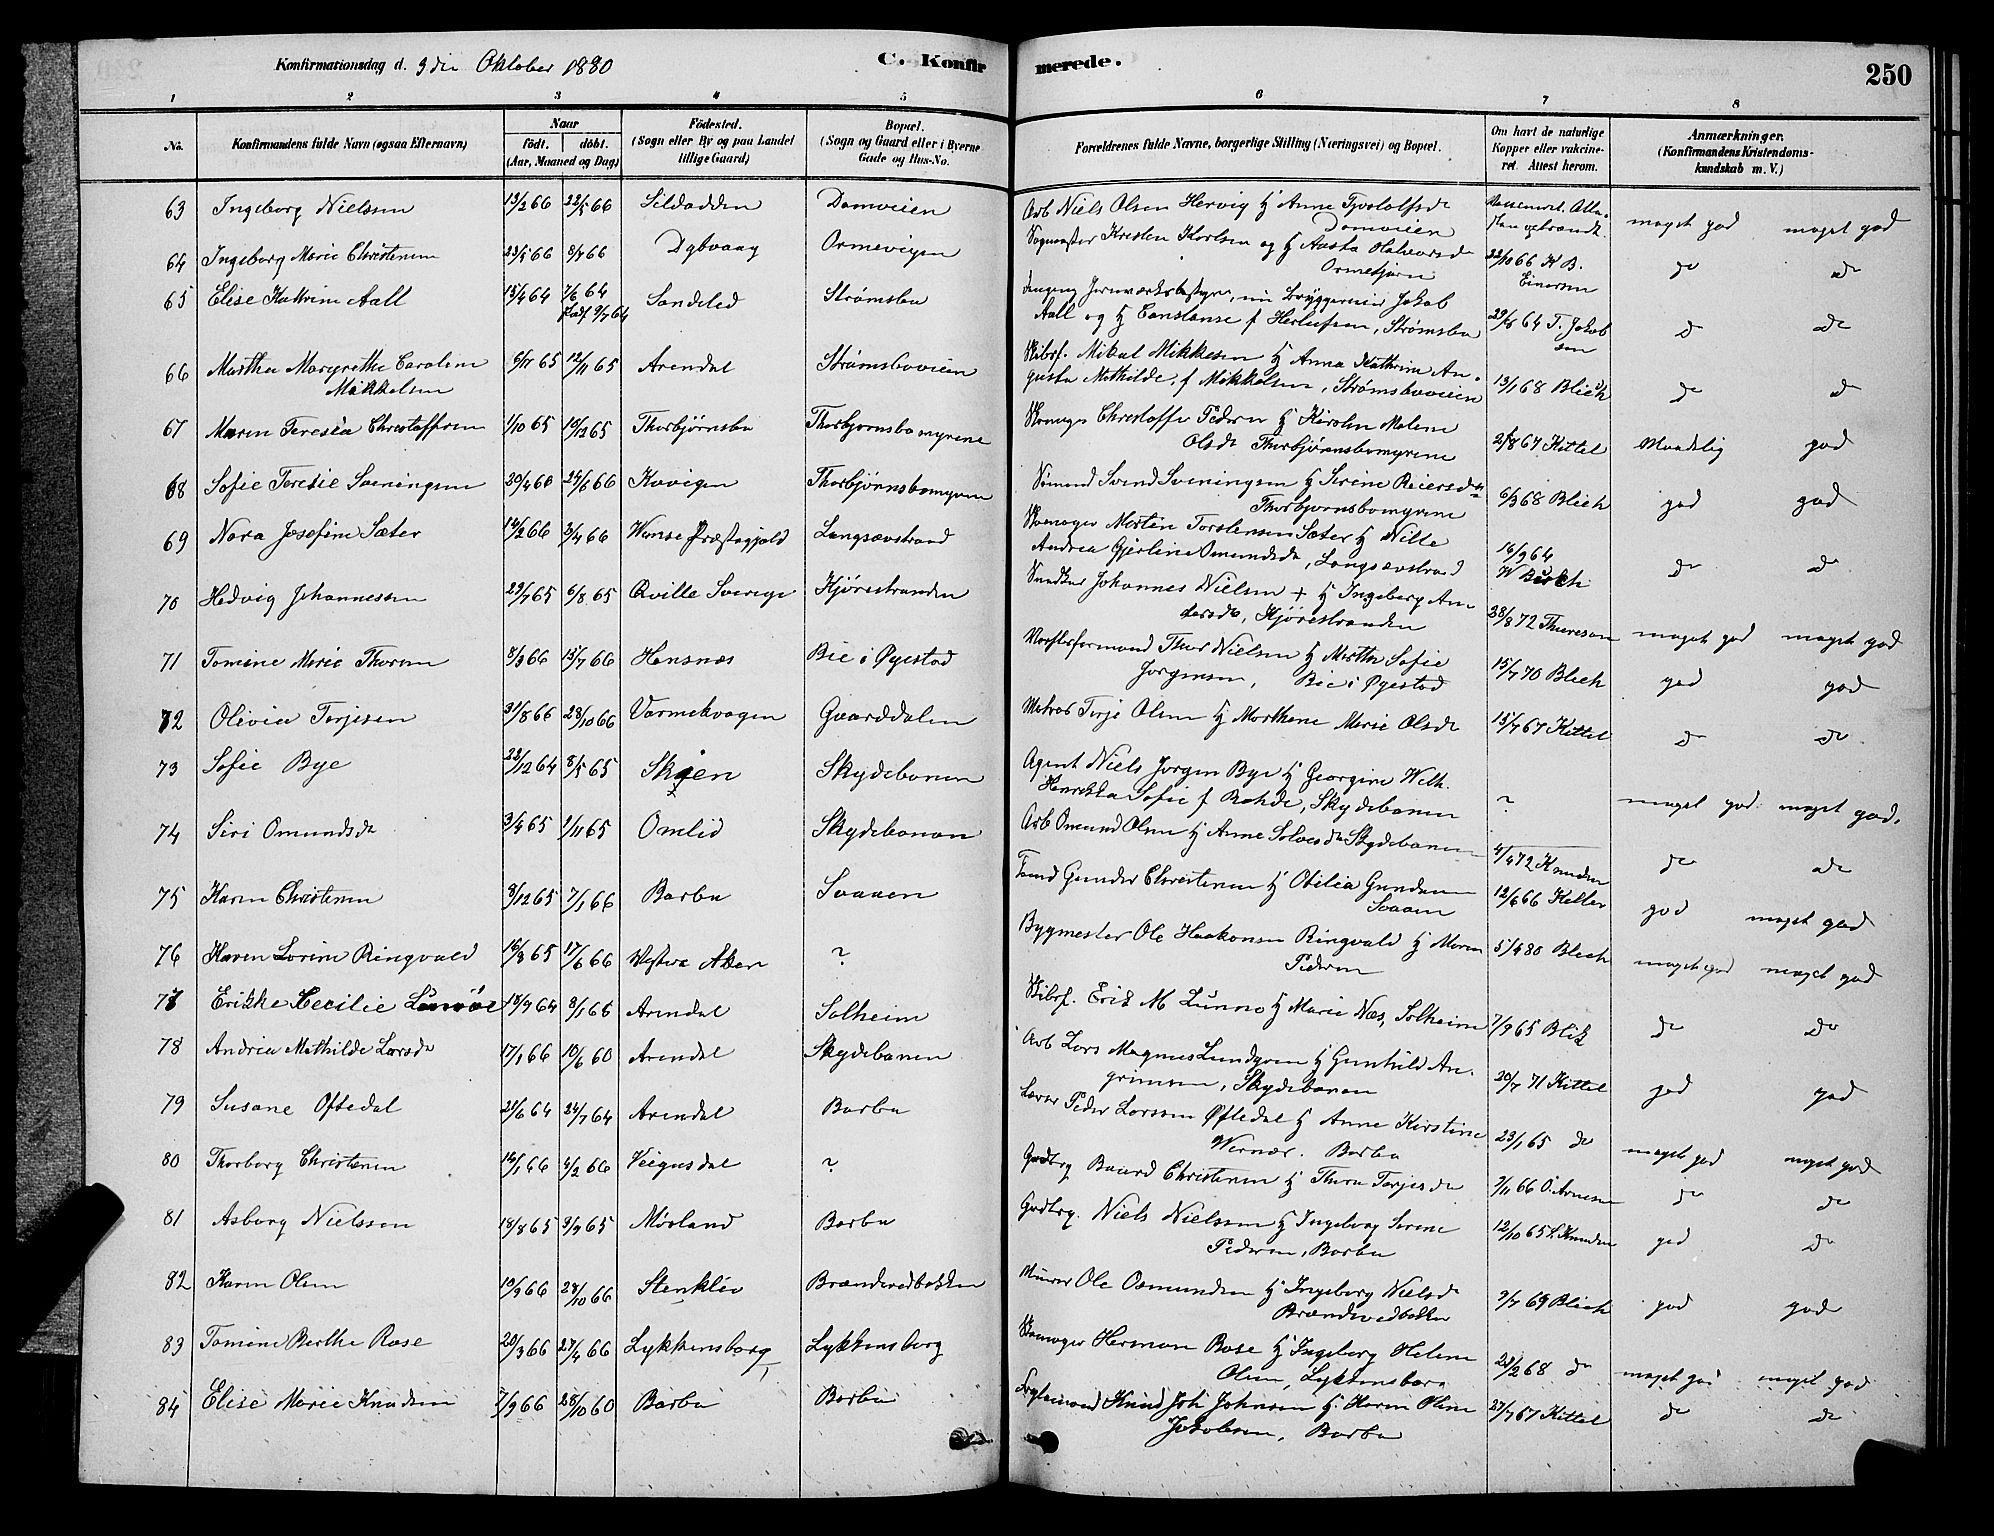 Konfirmationsdag d. 3die Oktober 1880 C. Konfirmerede. 250
1 2 3 4 5 6 7 8
No. Konfirmandens fulde Navn (ogsaa Efternavn) Naar født. døbt. (Aar, Maaned og Dag) Fødested. (Sogn eller By og paa Landet tillige Gaard) Bopæl. (Sogn og Gaard eller i Byerne Gade og Hus-No. Forældrenes fulde Navne, borgerlige Stilling (Næringsvei) og Bopæl. Om havt de naturlige Kopper eller vaccineret. Attest herom. Anmærkninger. (Konfirmandens Kristendomskundskab m. V.)
63 Ingeborg Nielsen 13/2 66 22/5 66 Sildodden Damveien Arb Niels Olsen Hervig Hj Anne Tjostolfsdr Damveien meget god meget god
64 Ingeborg Marie Christensen 23/5 66 8/7 66 Dybvaag Ormevigen Kristen Karlsen og Hj Aasta Halvorsdr 22/10 66 K B. Einersen do do
65 Elise Kathrine Aall 15/4 64 7/6 64 9/7 64 Søndeled Strømsbu Jernværksbestyrer, nu Bryggerieier Jakob
Aall og Hj Constanse f Herlofsen, Strømsbu 29/8 64 T. Jakobsen do do
66 Martha Margrethe Caroline Mikkelsen 6/11 65 12/11 65 Arendal Strømsboveien Skibsf. Mikal Mikkelsen Hj Anna Kathrine Au-
gusta Mathilde, f Mikkelsen, Strømsboveien 13/1 68 Blich do do
67 Maren Teresia Christoffersen 1/10 65 10/12 65 Thorbjørnsbu Thorbjørnsbomyrene Skomager Christoffer Pedersen Hj Karoline Malene
Olsdr Thorbjørnsbomyrene 2/8 67 Kittel Maadelig god
68 Sofie Teresie Sveningsen 20/4 66 24/6 66 Havigen Thorbjørnsbomyrene Sømand Svend Sveningsen Hj Sirine Reiersdr
Thorbjørnsbomyrene 6/3 68 Blich god god
69 Nora Josefine Sæter 14/2 66 2/4 66 Wanse Præstegjeld Langsævstrand Skomager Morten Torstensen Sæter Hj Nille
Andrea Gjerline Omundsdr, Langsævstrand 16/9 64 do do
70 Hedvig Johannessen 29/7 65 6/8 65 Qville Sverige Kjørestranden Johannes Nielsen + Hj Ingeborg An
dersdr, Kjørestranden 28/8 72 Thuresson meget god meget god
71 Tomine Marie Thorsen 8/3 66 15/7 66 Hensnæs Bie i Øyestad Værftsformand Thor Nielsen Hj Marthe Sofie
Jørgensen, Bie i Øyestad 15/7 70 Blich god god
72 Olivia Terjesen 31/8 66 28/10 66 Gaarddalen Matros Terje Olsen Hj Marthene Marie Olsdr 15/7 67 Kittel do do
73 Sofie Bye 22/12 64 8/5 65 Skien Skydebanen Agent Niels Jørgen Bye Hj Georgine Wilh.
Henrikka Sofie f Rohde, Skydebanen ? meget god meget god.
74 Siri Omundsdr 3/4 65 2/11 65 Omlid Skydebanen Arb Omund Olsen Hj Anne Solvesdr Skydebanen 4/4 72 Knudsen do do
75 Karen Christensen 8/12 65 7/1 66 Barbu Saaaen Tømd Gunder Christensen Hj Otilia Gundersen
12/6 66 Keller god meget god
76 Karen Lovine Ringvald 16/3 65 17/6 66 Vestre Aker ? Bygmester Ole Haakonsen Ringvald Hj Maren
Pedersen 5/4 80 Blich meget god meget god
77 Erikke Cecilie Lunøe 18/7 64 8/1 65 Arendal Solheim Skibsf. Erik M Lunnø Hj Marie Næs, Solheim 7/9 65 Blich do do
78 Andrea Mathilde Larsdr 17/1 66 10/6 60 Arendal Skydebanen Arb Lars Magnus Lundgren Hj Gunhild An-
grimsen, Skydebanen 20/7 71 Kittel god god
79 Susane Oftedal 21/6 64 24/7 64 Arendal Barbu Lærer Peder Larssen Øftedal Hj Anne Kirstine
Wernær. Barbu 23/1 65 do meget god meget god
80 Thorborg Christensen 16/1 66 4/2 66 Veigusdal ? Gaardbrg Baard Christensen Hj Thora Terjesdr 2/11 66 O. Arnesen do do
81 Asborg Nielsen 18/8 65 3/9 65 Mørland Barbu Gaardbrg. Niels Nielsen Hj Ingeborg Serine
Pedersen, Barbu 12/10 65 S. Knudsen god do
82 Karen Olsen 10/9 66 28/10 66 Stenkløv Brændevedbakken Murer Ole Osmundsen Hj Ingeborg Nielsdr
Brændevedbakken 3/7 69 Blich god god
83 Tomine Berthe Rose 20/3 66 27/4 66 Lykkensborg Lykkensborg Skomager Herman Rose Hj Ingeborg Helene
Olsen, Lykkensborg 21/2 68 do meget god meget god
84 Elise Marie Knudsen 7/9 66 28/10 60 Barbu Barbu Knud Joh Johnsen Hj Karen Oline
Jakobsen, Barbu 27/7 67 Kittel do do